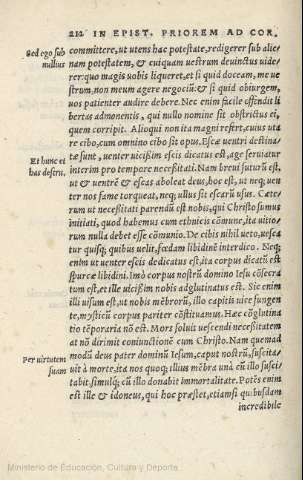 212 IN EPIST. PRIOREM AD COR.
Sed ego sub nullius
committere, ut utens hac potestate, redigerer sub alie-
nam potestatem, & cuiquam uestrum deuinctus uide-
rer: quo magis uobis liqueret, et si quid doceam, me ue
strum, non meum agere negociũ: & si quid obiurgem,
uos patienter audire debere. Nec enim facile offendit li
bertas admonentis, qui nullo nomine sit obstrictus ei,
quem corripit. Alioqui non ita magni refert, cuius uta
re cibo, cum omnino cibo sit opus. Escæ uentri destina-
Et hunc et has destru.
tæ sunt, uenter uicißim escis dicatus est, age seruiatur
interim pro tempore neceßitati. Nam breui futurũ est,
ut & uentrẽ & escas aboleat deus, hoc est, ut neq; uen
ter nos fame torqueat, neq; ullus sit escarũ usus. Cæte-
rum ut neceßitati parendũ est nobis, qui Christo sumus
initiati, quod habemus cum ethnicis cõmune, ita uitio-
rum nulla debet esse cõmunio. De cibis nihil ueto, uesca
tur quisq; quibus uelit, fœdam libidinẽ interdico. Neq;
enim ut uenter escis dedicatus est, ita corpus dicatũ est
spurcæ libidini. Imò corpus nostrũ domino Iesu cõsecra
tum est, et ille uicißim nobis adglutinatus est. Sic enim
illi uisum est, ut nobis mẽbrorũ, illo capitis uice fungen
te, mysticũ corpus pariter cõstituamus. Hæc cõglutina
tio tẽporaria nõ est. Mors soluit uescendi neceßitatem
at nõ dirimit coniunctionẽ cum Christo. Nam quemad
Per uirtutem suam
modũ deus pater dominũ Iesum, caput nostrũ, suscita-
uit à morte, ita nos quoq; illius mẽbra unà cũ illo susci
tabit. simulq; cũ illo donabit immortalitate. Potẽs enim
est ille & idoneus, qui hoc præstet, etiamsi quibusdam
incredibile
Ministerio de Educación, Cultura y Deporte